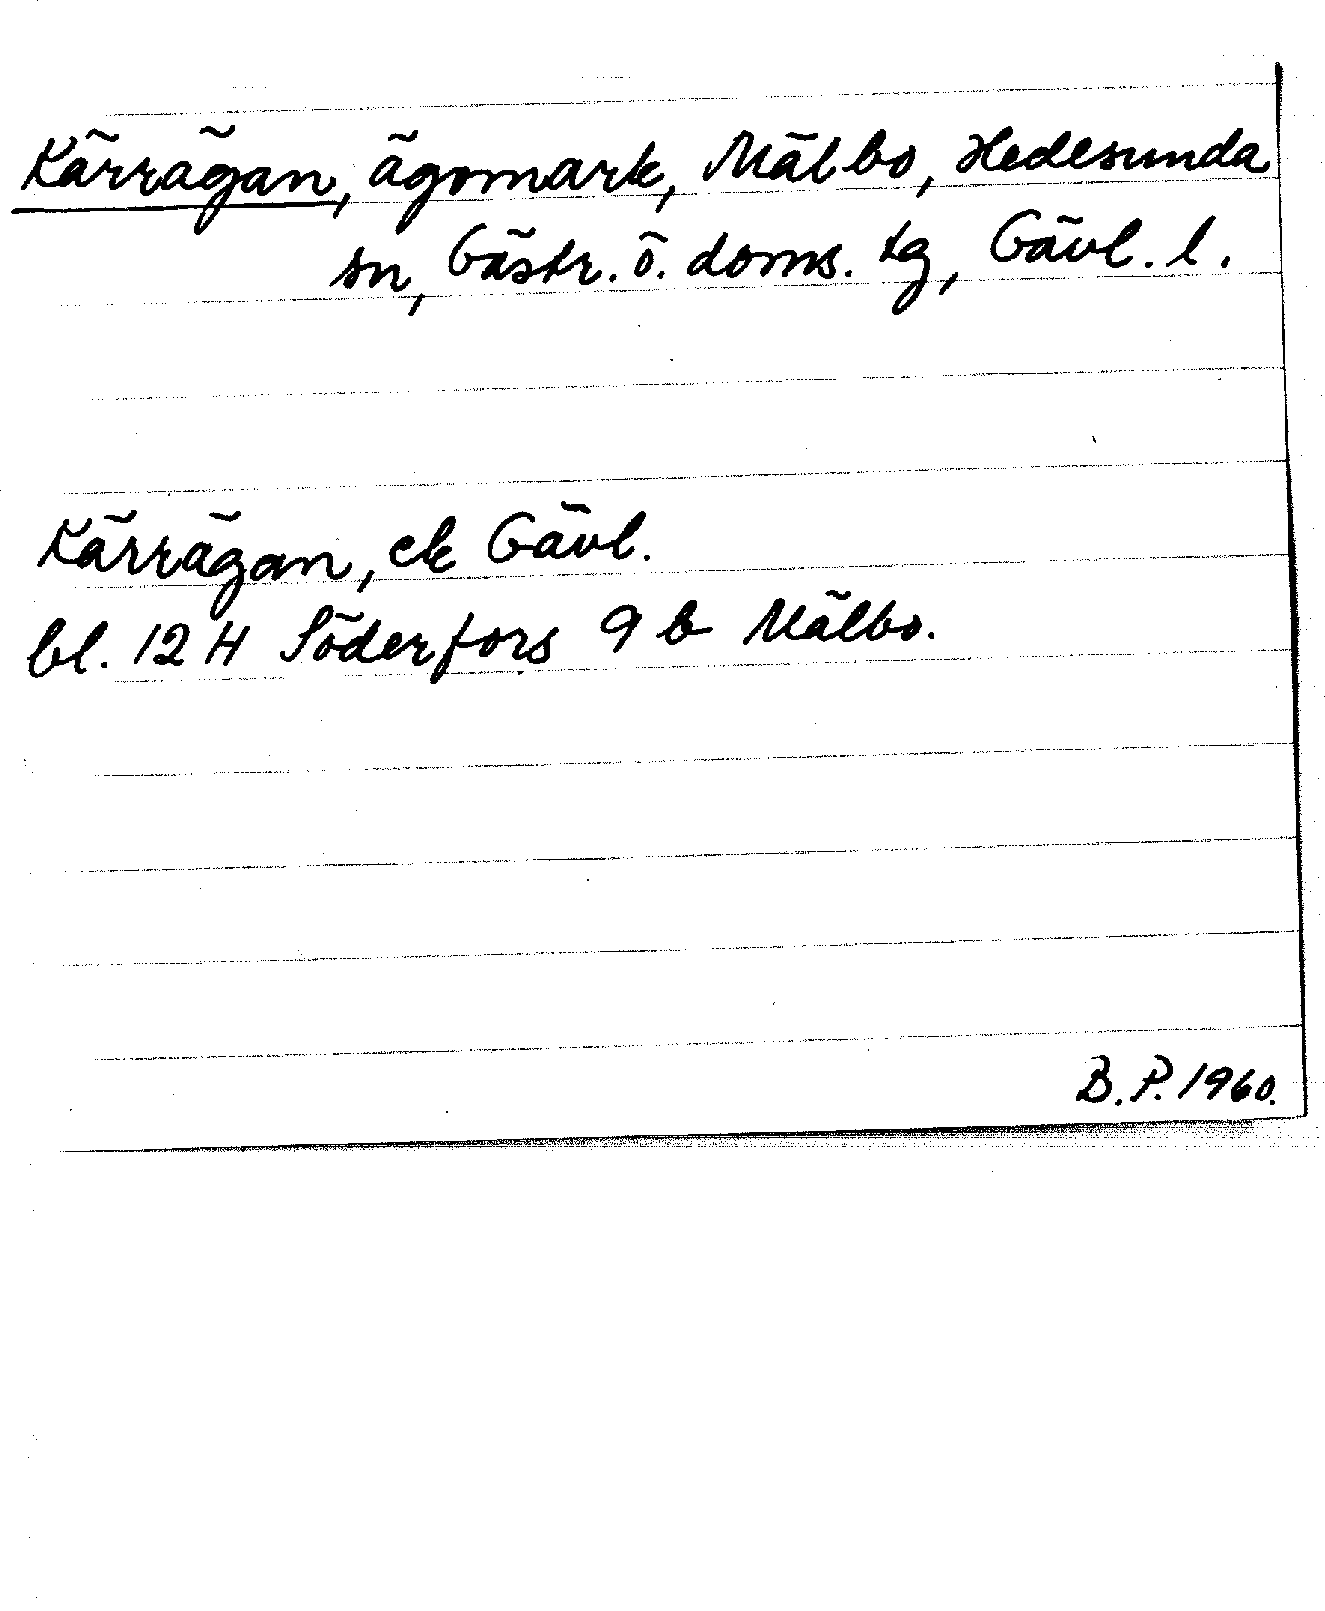 Kärrägan, ägomark, Mälbo, Hedesunda
sn, Gästr. ö. doms. tg, Gävl. l.
Kärrägan, ek Gävl.
bl. 12 H Söderfors 9 b Mälbo.
B. P. 1960.